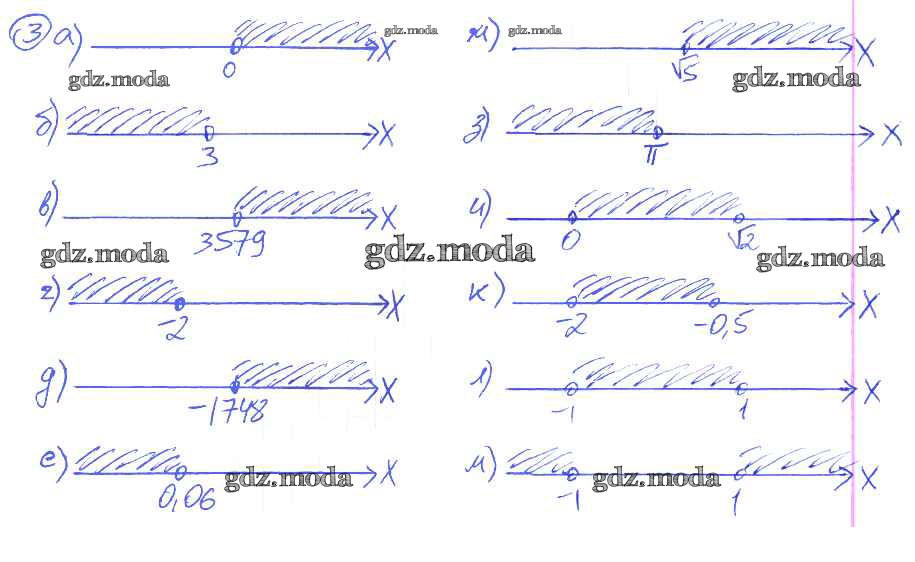 3 а) 0 x gdz.moda
gdz.moda
б) 3 x
в) 3579 x
gdz.moda
г) -2 x
д) -1748 x
е) 0,06 x
gdz.moda
ж) gdz.moda √5 x
gdz.moda
з) π x
и) 0 √2 x
gdz.moda
gdz.moda
к) -2 -0,5 x
л) -1 1 x
м) -1 1 x
gdz.moda